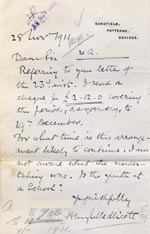 SANDFIELD,
POTTERNE,
DEVIZES.
28 Nov 1911
Dear Sir
Referring to your letter of
the 23rd inst. I send a
cheque for £2.12.0 covering
the period, as you say, to
December.
For what time is this arrange-
ment likely to continue. I am
not aware what the under-
taking was. Is the youth at
a School?
Yrs faithfully
Henry Medlicott
1911